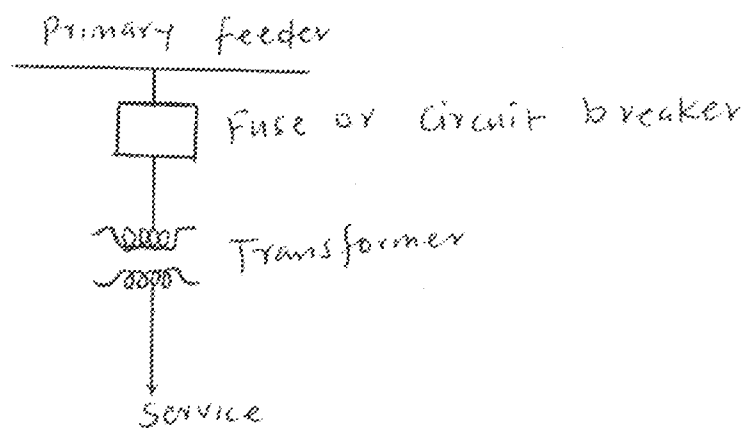 Primary feeder
Fuse or Circuit breaker
Transformer
Service